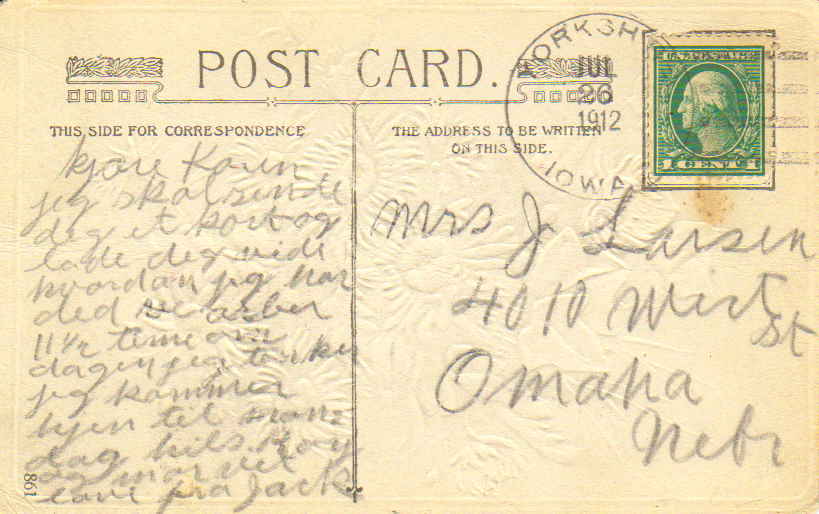 POST CARD.
THIS SIDE FOR CORRESPONDENCE
THE ADDRESS TO BE WRITTEN
ON THIS SIDE.
YORKSHIRE
JUL
26
1912
IOWA
1 CENT 1
kjære Karen
jeg skal sende
dig et kort og
lade dig vide
hvordan jeg har
ded arber
11 1/2 time om
dagen jeg tenker
jeg kommer
hjem til man=
dag hils
og
love fra Jack
Mrs J Larsen
4010 West
St
Omaha
Nebr
861